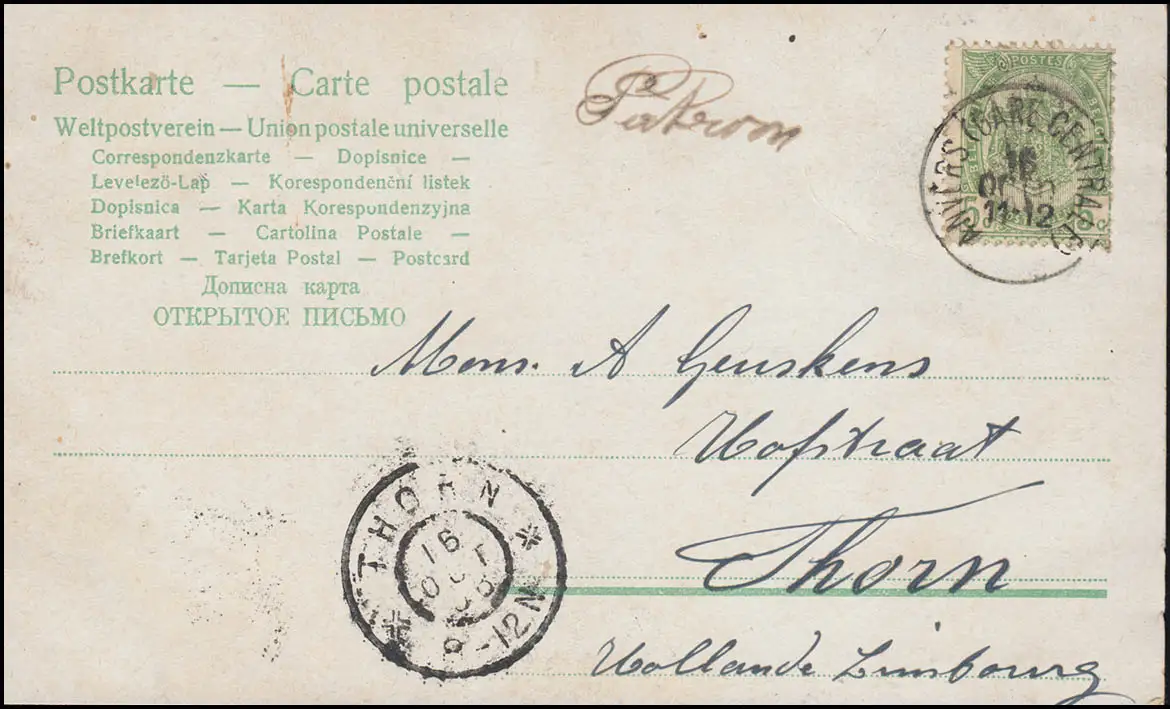 Postkarte — Carte postale
Weltpostverein — Union postale universelle
Correspondenzkarte — Dopisnice —
Levelező-Lap — Korespondenční listek
Dopisnica — Karta Korespondenzyjna
Briefkaart — Cartolina Postale —
Brefkort — Tarjeta Postal — Postcard
Дописна карта
ОТКРЫТОЕ ПИСЬМО
Patroon
POSTES
5 5
ANVERS (GARE CENTRALE)
16
11-12
Mons. A Geuskens
Hofstraat
Thorn
Hollande Limbourg
THORN
16
OCT
8-12N